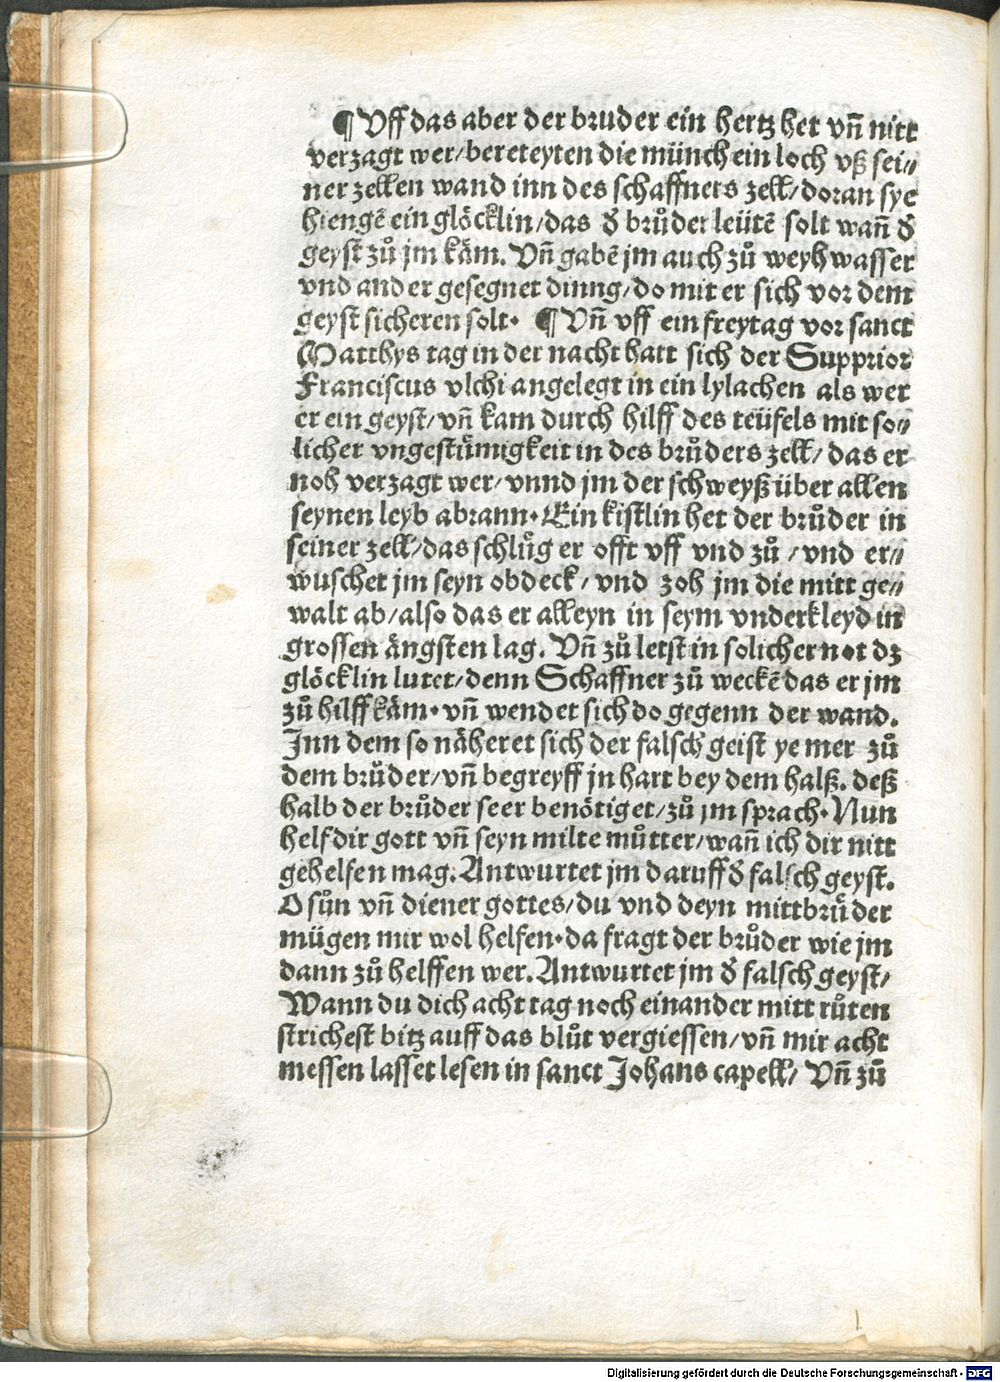 ¶ Uff das aber der bruder ein hertz het vñ nitt
verzagt wer/bereteyten die münch ein loch vß sei⸗
ner zellen wand inn des schaffners zell/doran sye
hiengē ein glöcklin/das d̕ brůder leütē solt wañ d̕
geyst zů jm käm. Vñ gabē jm auch zů weyhwasser
vnd ander gesegnet dinng/do mit er sich vor dem
geyst sicheren solt. ¶ Vñ vff ein freytag vor sanct
Matthys tag in der nacht hatt sich der Supprior
Franciscus vlchi angelegt in ein lylachen als wer
er ein geyst/vñ kam durch hilff des teüfels mit so⸗
licher vngestümigkeit in des brůders zell/das er
noh verzagt wer/vnnd jm der schweyß über allen
seynen leyb abrann. Ein kistlin het der brůder in
seiner zell/das schlůg er offt vff vnd zů/vnd er⸗
wuschet jm seyn obdeck/vnd zoh jm die mitt ge⸗
walt ab/also das er alleyn in seym vnderkleyd in
grossen ängsten lag. Vñ zů letst in solicher not dz
glöcklin lutet/denn Schaffner zů weckē das er jm
zů hilff käm. vñ wendet sich do gegenn der wand.
Inn dem so näheret sich der falsch geist ye mer zů
dem brůder/vñ begreyff jn hart bey dem halß. deß
halb der brůder seer benötiget/zů jm sprach. Nun
helf dir gott vñ seyn milte můtter/wañ ich dir nitt
gehelfen mag. Antwurtet jm daruff d̕ falsch geyst.
O sůn vñ diener gottes/du vnd deyn mittbrůder
mügen mir wol helfen. da fragt der brůder wie jm
dann zů helffen wer. Antwurtet jm d̕ falsch geyst/
Wann du dich acht tag noch einander mitt růten
strichest bitz auff das blůt vergiessen/vñ mir acht
messen lasset lesen in sanct Johans capell/ Vñ zů
Digitalisierung gefördert durch die Deutsche Forschungsgemeinschaft - DFG